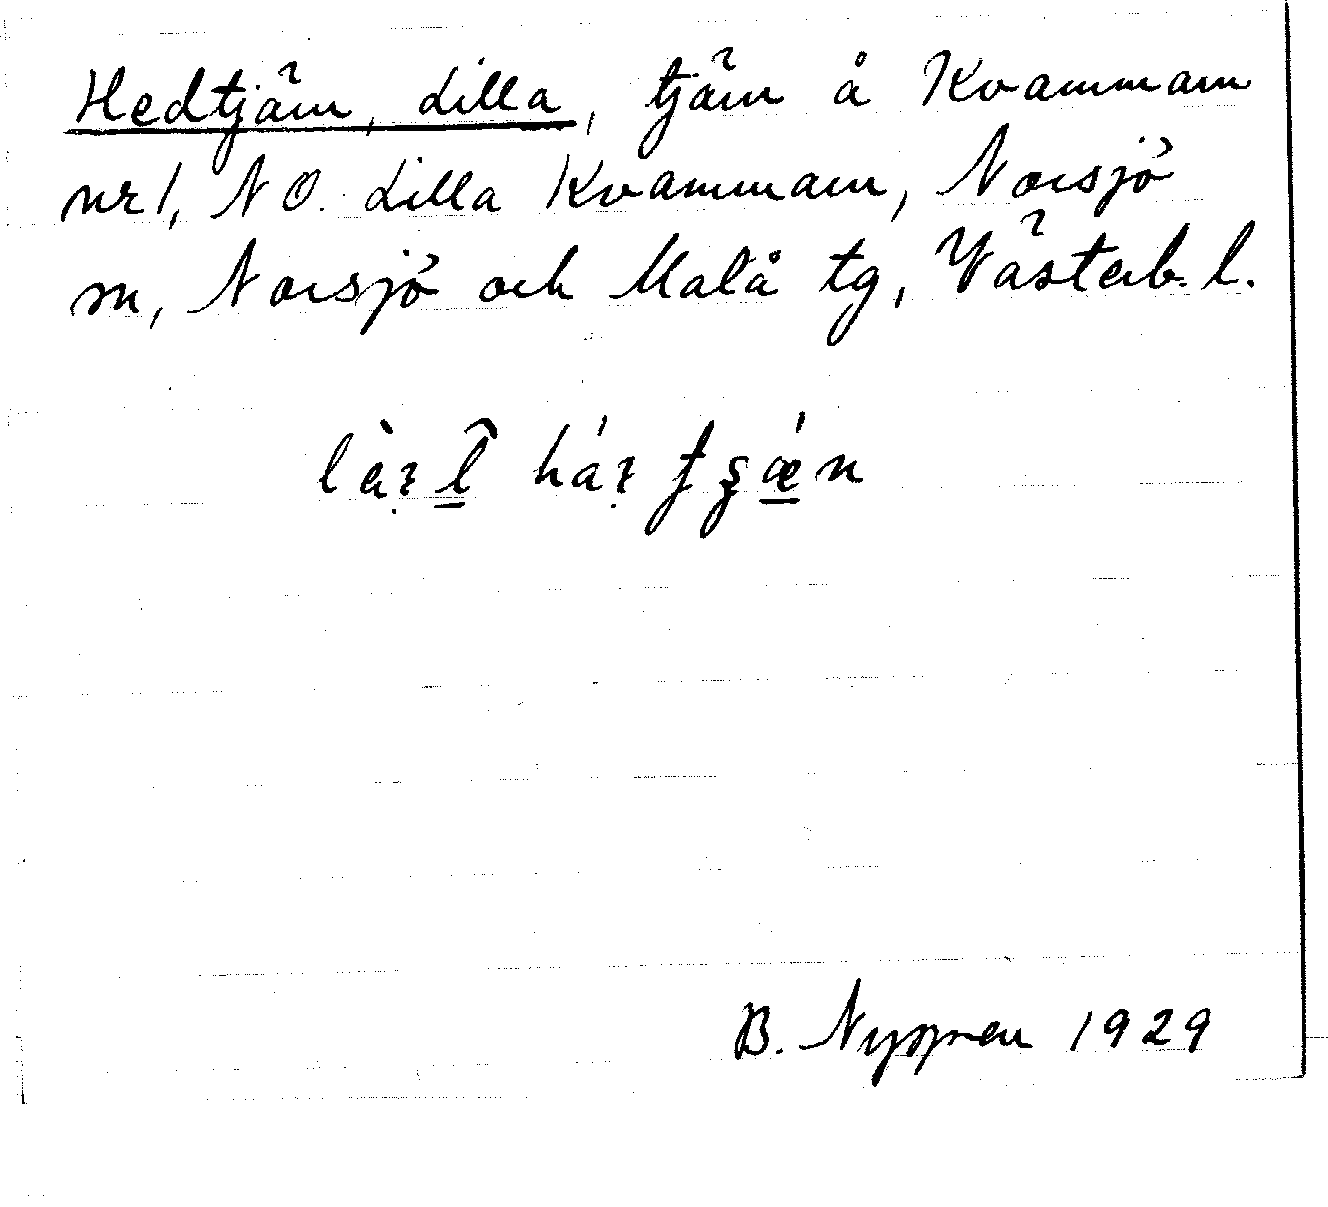 Hedtjärn, Lilla, tjärn å Kvammarn
nr 1, NO. Lilla Kvammarn, Norsjö
sn, Norsjö och Malå tg, Västerb. l.
B. Nyrén 1929